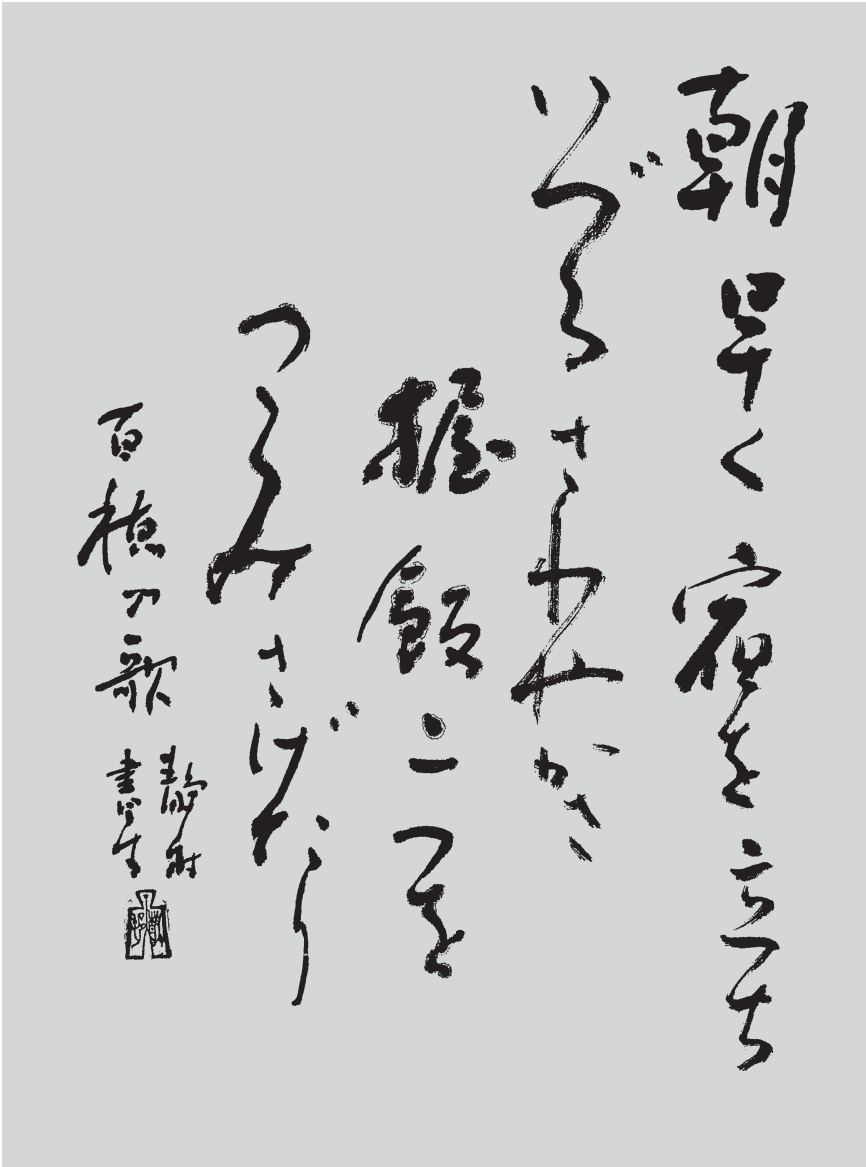 朝早く宿を立ち
いづるさわやかさ
握飯二つを
つゝみさげたり
百穂乃歌
静村
書